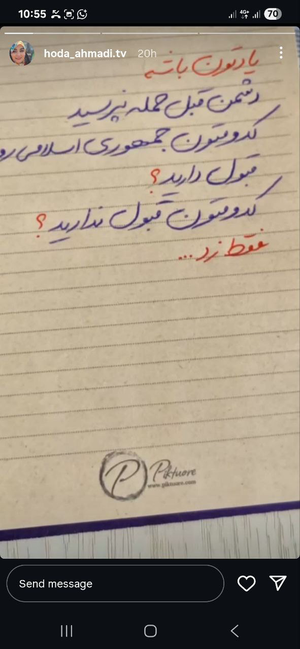 10:55
4G+
70
hoda_ahmadi.tv 20h
یادتون باشه
دشمن قبل حمله نپرسید
کدومتون جمهوری اسلامی رو
قبول دارید؟
کدومتون قبول ندارید؟
فقط زد...
P Piktuore
www.piktuore.com
Send message